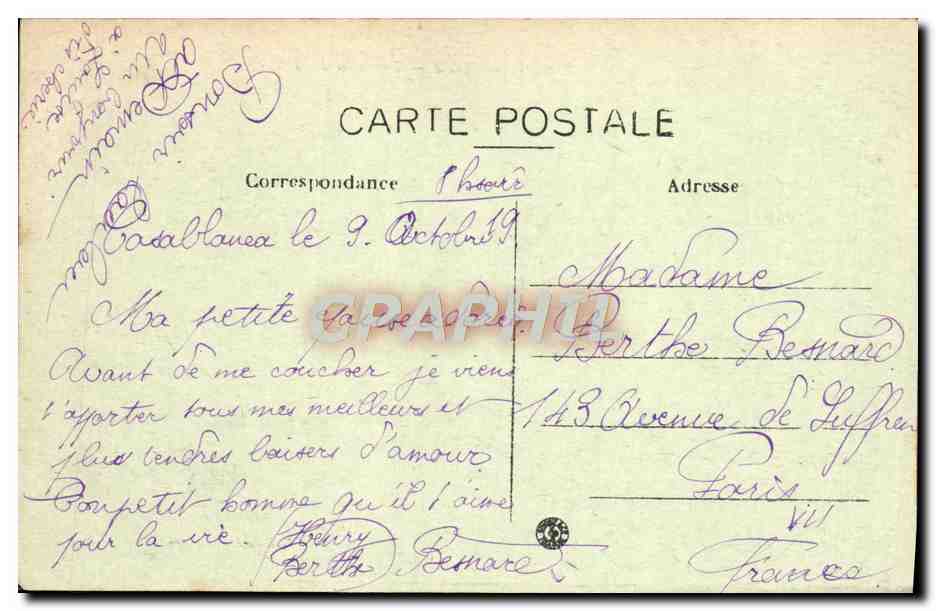 Bonsoir
à Demain
un bonjour
à Louise.
CARTE POSTALE
Correspondance
Adresse
Casablanca le 9. Octobre 19
Ma petite adorée.
Avant de me coucher je viens
t'apporter tous mes meilleurs et
plus tendres baisers d'amour.
Ton petit homme qu'il t'aime
pour la vie.
Henry
Berthe Besnard
Madame
Berthe Besnard
143 Avenue de Suffren
Paris
VII
France
CPAPHIL